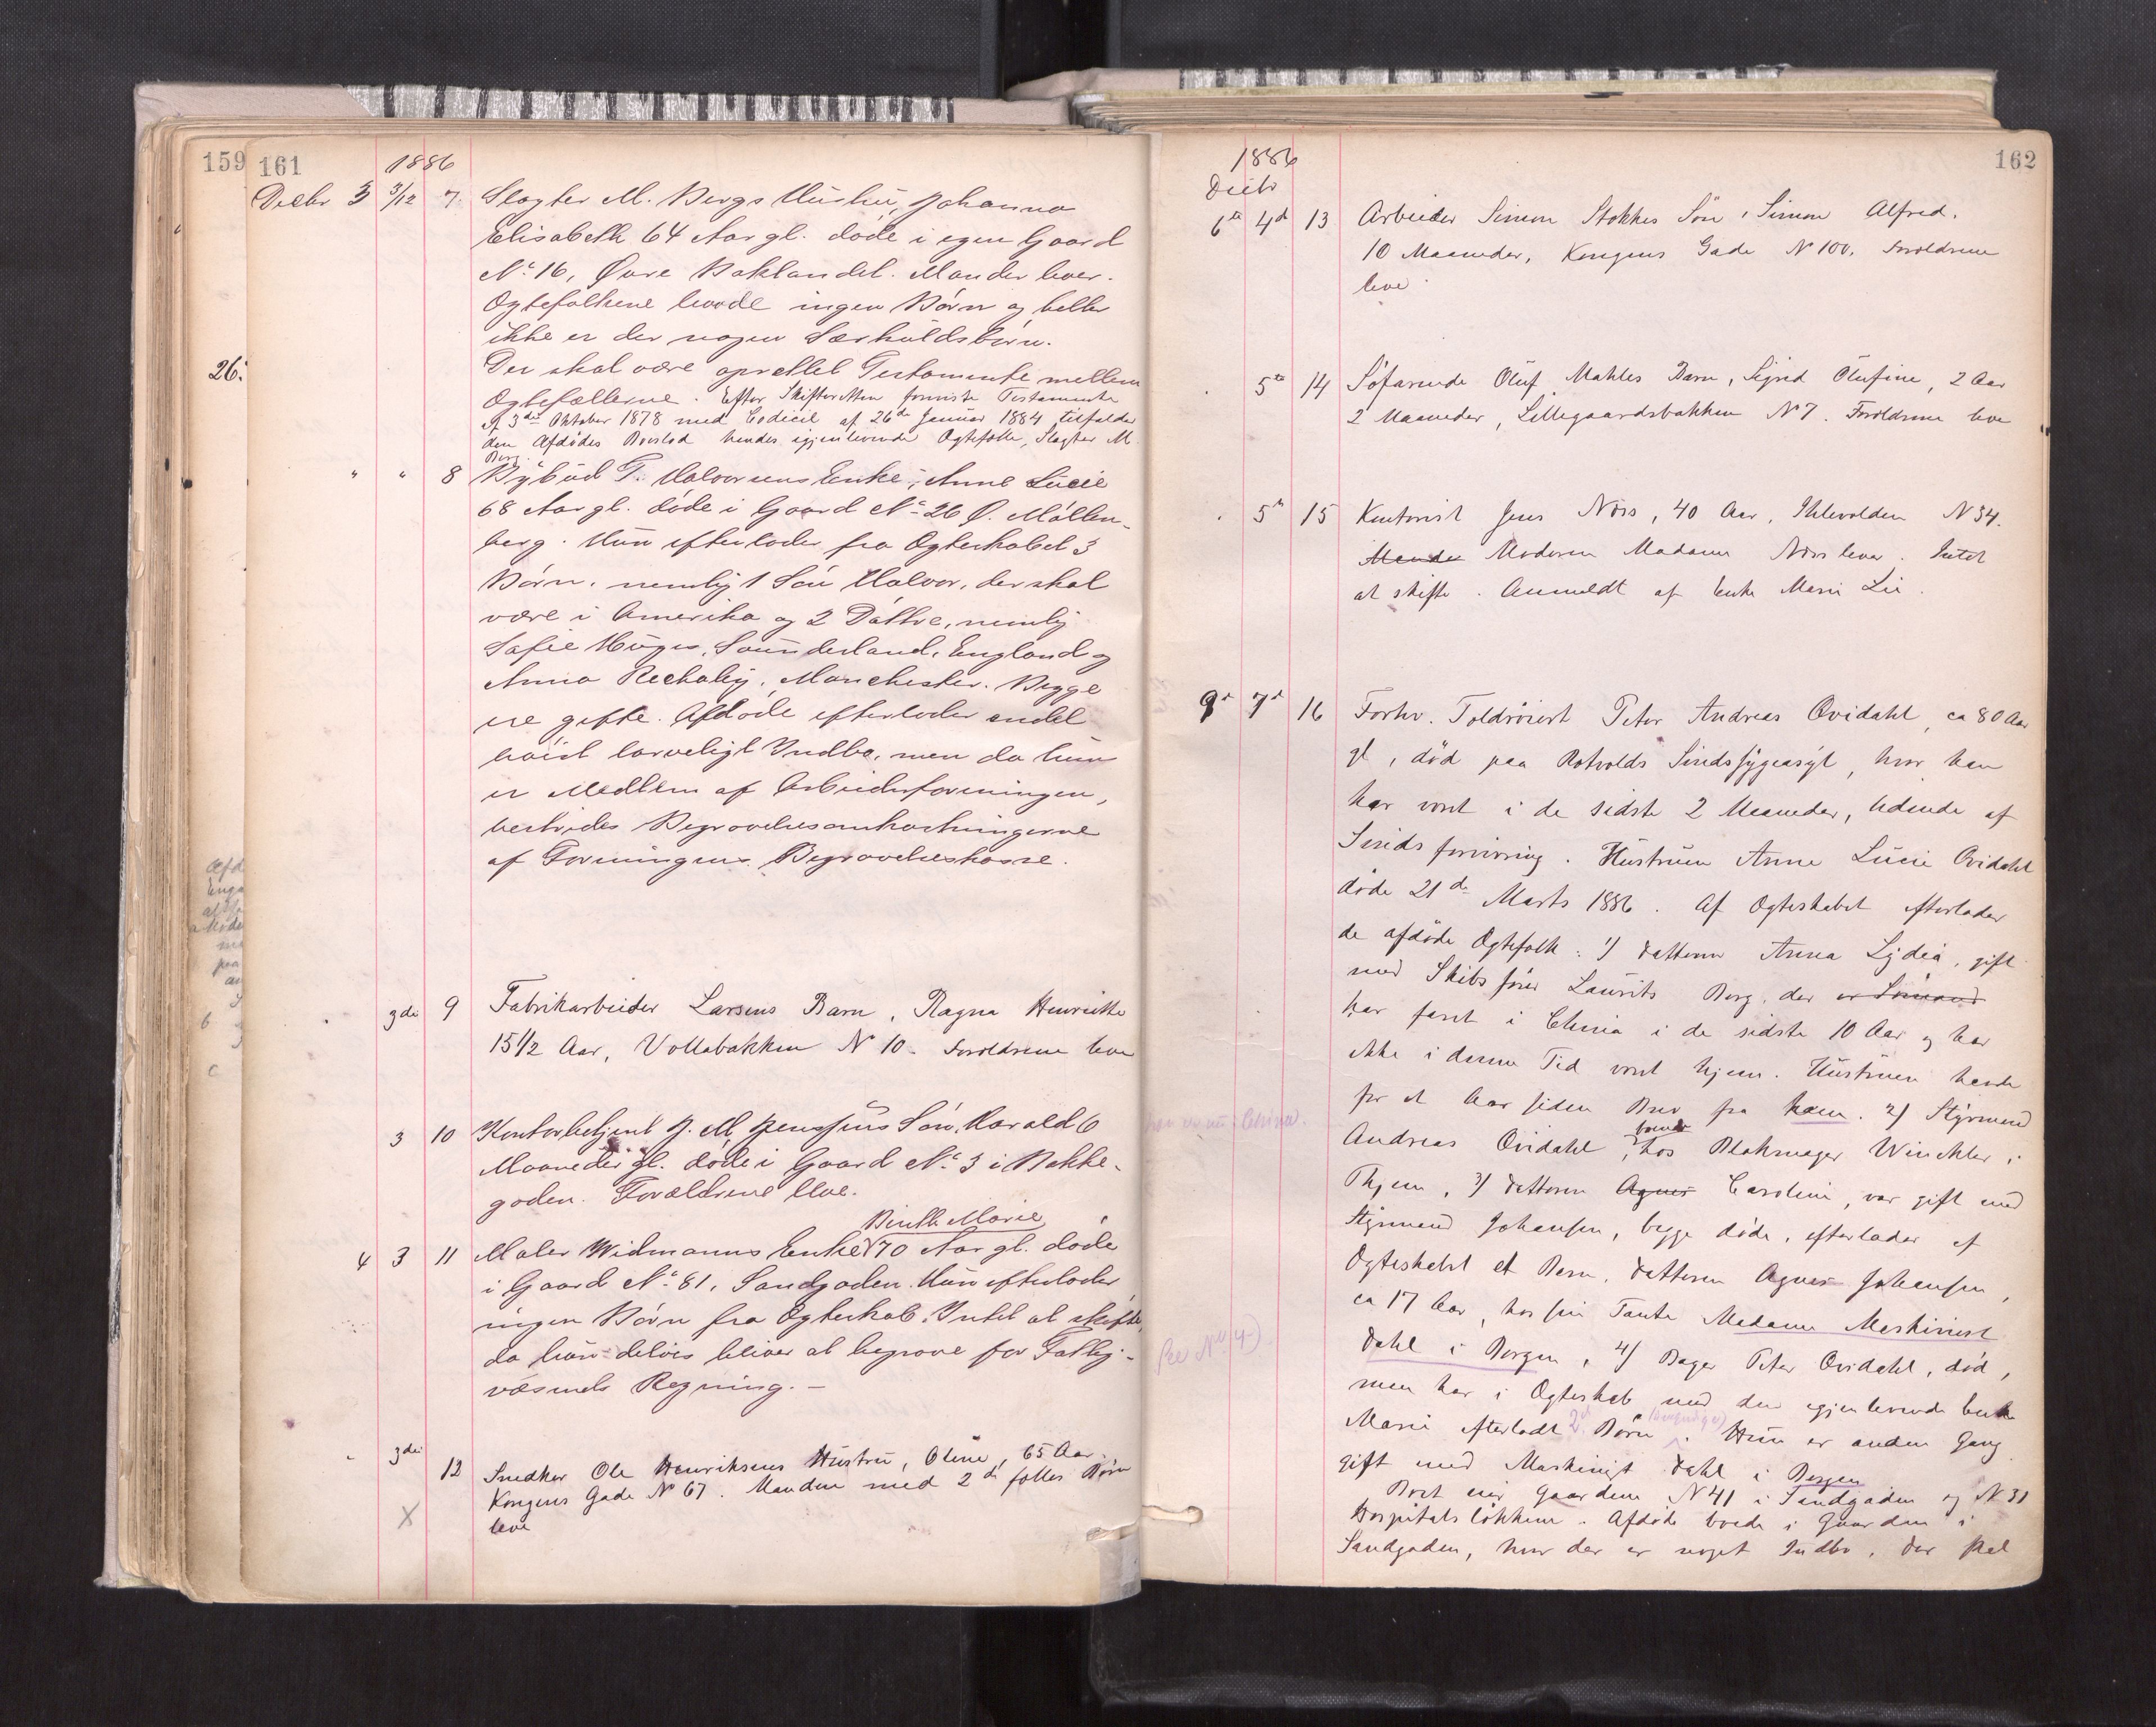 159
26.
161
1886
Decbr 3 3/12 7. Slagter M. Bergs Hustru, Johanna
Elisabeth 64 Aar gl. døde i egen Gaard
No 16, Øvre Baklandet. Manden lever.
Ægtefolkene havde ingen Børn og heller
ikke er der nogen Særkuldsbørn.
Der skal være oprettet Testamente mellem
Ægtefællerne. Efter Skifteretten foreviste Testamente
af 3die Oktober 1878 med Codicil af 26de Januar 1884 tilfalder
den Afdødes Boeslod hendes igjenlevende Ægtefælle, Slagter M.
Berg.
" " 8 Bybud T. Halvorsens Enke, Anne Lucie
68 Aar gl. døde i Gaard No 26 Ø. Møllen-
berg. Hun efterlader fra Ægteskabet 3
Børn, nemlig 1 Søn Halvor, der skal
være i Amerika og 2 Døttre, nemlig
Sofie Huges, Sunderland, England og
Anna Rechaby, Manchester. Begge
ere gifte. Afdøde efterlader endel
høist tarveligt Indbo, men da hun
er Medlem af Arbeiderforeningen,
bestrides Begravelsesomkostningerne
af Foreningens Begravelseskasse.
3die 9 Fabrikarbeider Larsens Barn, Ragna Henriette
15 1/2 Aar, Vollabakken N 10. Forældrene leve
3 10 Kontorbetjent J. M. Jenssens Søn, Harald 6
Maaneder gl. døde i Gaard No 3 i Bakke-
gaden. Forældrene leve.
Binthe Marie
4 3 11 Maler Widmanns Enke 70 Aar gl. døde
i Gaard No 81, Sandgaden. Hun efterlader
ingen Børn fra Ægteskab. Intet at skifte,
da hun delvis bliver at begrave for Fattig-
væsenets Regning. -
3die 12 Snedker Ole Henriksens Hustru, Oline, 65 Aar,
Kongens Gade No 67. Manden med 2de fælles Børn
leve
X
162
1886
Decbr
6te 4d 13 Arbeider Simon Stokkes Søn, Simon Alfred,
10 Maaneder, Kongens Gade N 100. Forældrene
leve
5te 14 Søfarende Oluf Mahles Barn, Sigrid Olufine, 2 Aar
2 Maaneder, Lillegaardsbakken N 7. Forældrene leve
5te 15 Kontorist Jens Næss, 40 Aar, Ihlevolden N 34.
Manden Moderen Madame Næss lever. Intet
at skifte. Anmeldt af Enke Marie Lie.
9d 7d 16 Forhv. Toldrørert Peter Andreas Qvidahl, ca 80 Aar
gl, død paa Rotvolds Sindssygeasyl, hvor han
har været i de sidste 2 Maaneder, lidende af
Sindsforvirring. Hustruen Anne Lucie Qvidahl
døde 21de Marts 1886. Af Ægteskabet efterlader
de afdøde Ægtefolk: 1) Datteren Anna Lydia, gift
med Skibsfører Laurits Berg, der er Sømand
har faret i China i de sidste 10 Aar og har
ikke i denne Tid været hjem. Hustruen havde
for et Aar siden Brev fra ham. 2) Styrmand
Andreas Qvidahl, hos Blokmager Winckler i
Thjem, 3) Datteren Agnes Caroline, var gift med
Styrmand Johansen, begge døde, efterlader af
Ægteskabet et Barn, Datteren Agnes Johansen,
ca 17 Aar, hos sin Tante Madame Maskinist
Dahl i Bergen, 4) Bager Peter Qvidahl, død,
men har i Ægteskab med den igjenlevende Enke
Marie efterladt 2d Børn. Hun er anden Gang
gift med Maskinist Dahl i Bergen
Boet eier Gaardene N 41 i Sandgaden og N 31
Hospitalsløkken. Afdøde boede i Gaarden i
Sandgaden, hvor der er noget Indbo. Der skal
her er nu i China.
(Se No 4)